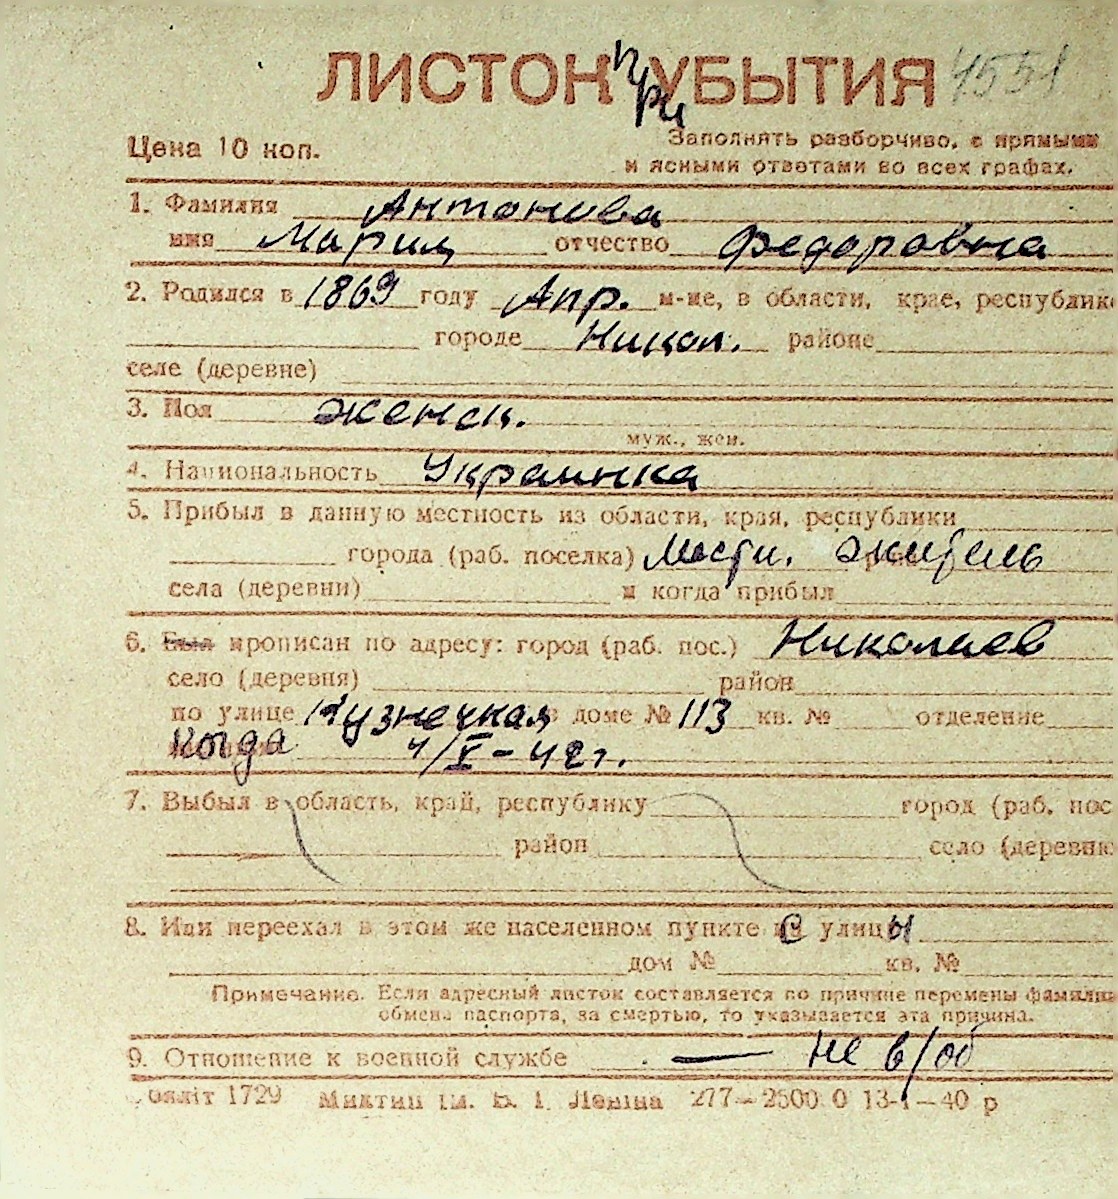 ЛИСТОК при УБЫТИЯ 4551
Цена 10 коп.
Заполнять разборчиво, с прямыми
и ясными ответами во всех графах.
1. Фамилия Антонова
имя Мария отчество Федоровна
2. Родился в 1869 году Апр. м-це, в области, крае, республике
городе Никол. районе
селе (деревне)
3. Пол женск.
муж., жен.
4. Национальность Украинка
5. Прибыл в данную местность из области, края, республики
города (раб. поселка) Местн. житель
села (деревни) и когда прибыл
6. Был прописан по адресу: город (раб. пос.) Николаев
село (деревня) район
по улице Кузнечная в доме № 113 кв. № отделение
Когда 4/V-42г.
7. Выбыл в область, край, республику город (раб. пос
район село (деревню
8. Или переехал в этом же населенном пункте с улицы
дом № кв. №
Примечание. Если адресный листок составляется по причине перемены фамилии
обмена паспорта, за смертью, то указывается эта причина.
9. Отношение к военной службе — не в/об
1729 им. В. І. Леніна 277—2500 0 13-1—40 р